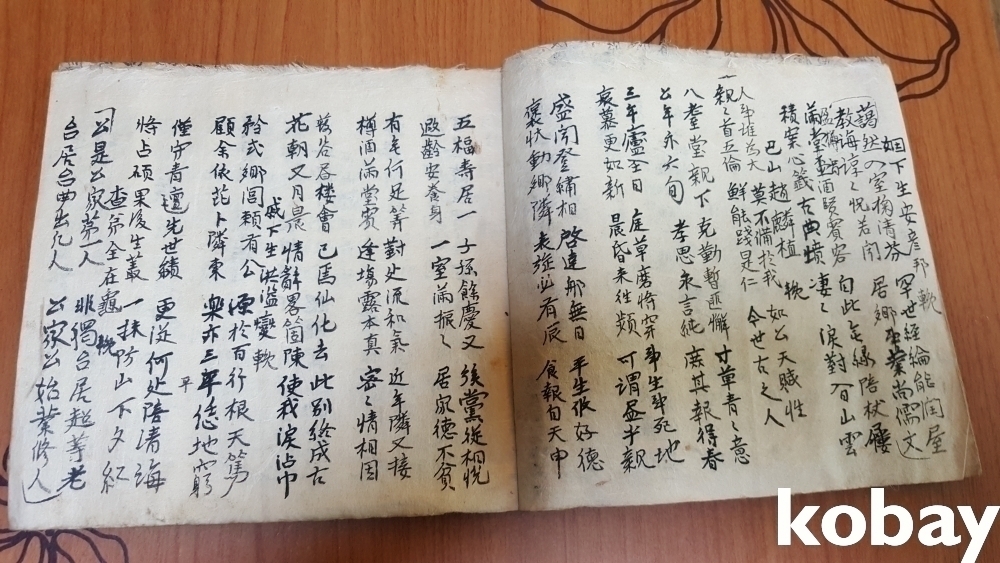 姻下生 安彦邦 輓
藹然入室掬清芬 罕世經綸能潤屋
教誨諄〻怳若聞 居鄉事業尚儒文
滿堂盃酒賢賓客 自此無緣陪杖屨
積案心籤古典墳 凄〻淚對百山雲
巴山趙麟植 輓
人事誰爲大 莫不備於我 如公天賦性
親〻首五倫 鮮能踐是仁 今世古之人
八耋堂親下 克勤暫匪懈 寸草青〻意
公年亦六旬 孝思永言純 庶其報得春
三年廬墓日 庭草磨將穿 事生事死地
哀慕更如新 晨昏来往頻 可謂盡半親
盛閥登繡相 啓達那無日 平生張好德
褒狀動鄉隣 表旋必有辰 食報自天申
五福壽居一 子孫餘慶又 後黨從相悅
遐齡安養身 一室滿振〻 居家德不貧
有年何足筭 對处流和氣 近年隣又接
樽酒滿堂賓 逢塲露本真 密〻情相因
樓會 已 仙化去 此別終成古
花朝又月晨 情辭畧箇陳 使我淚沾巾
戚下生洪 輓
矜式鄉閭賴有公 源於百行根天篤
顧余依 卜隣東 樂亦三年恁地窮
僅守青氈先世績 更從何处陪清誨
將占碩果後生叢 一抹防山下夕紅
査弟全在龜 輓
公是公家第一人 非獨台居超等老
台居台 出凡人 公家公始業修人
kobay